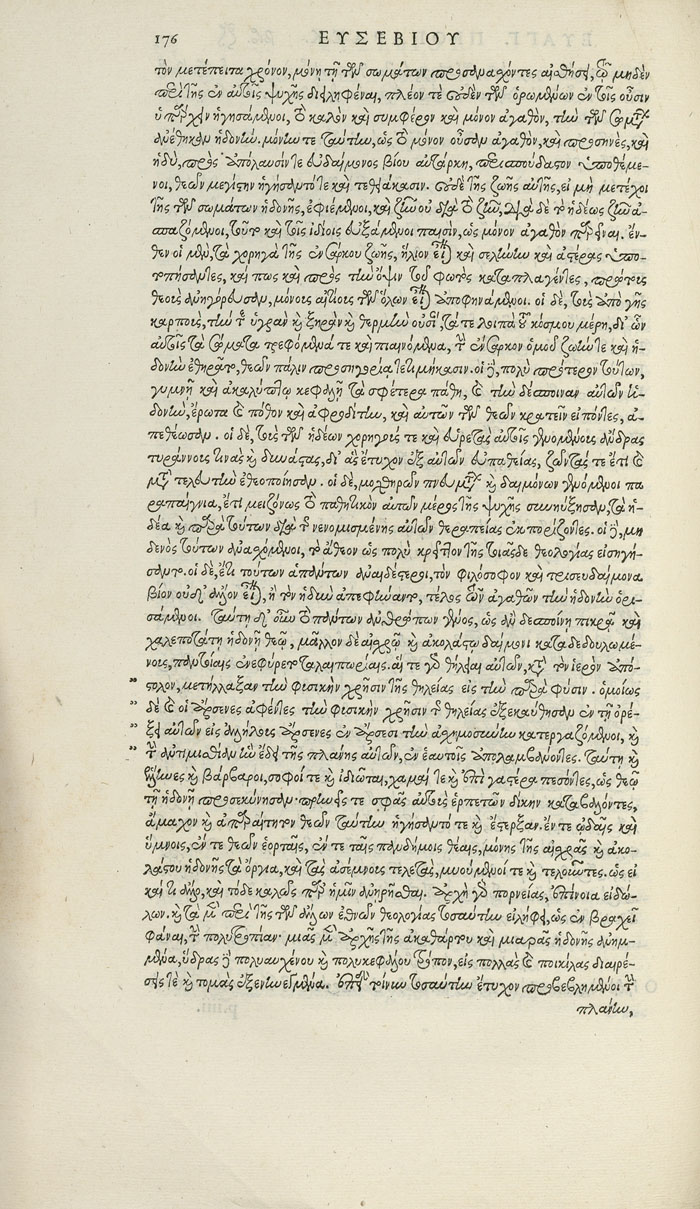 176 ΕΥΣΕΒΙΟΥ
τὸν μετέπειτα χρόνον, μόνῃ τῇ τῶν σωμάτων προσσχόντες αἰσθήσει, τῷ μηδὲν
περὶ τῆς ἐν αὐτοῖς ψυχῆς διειληφέναι, πλέον τε οὐδὲν τῶν ὁρωμένων ἐν τοῖς οὖσιν
ὑπάρχειν ἡγησάμενοι, τὸ καλὸν καὶ συμφέρον καὶ μόνον ἀγαθὸν, τὴν τῶν σωμάτων
ἀνέθηκαν ἡδονήν. μόνην τε ταύτην, ὡς τὸ μόνον οὖσαν ἀγαθὸν, καὶ προσηνὲς, καὶ
ἡδὺ, πρὸς ἀπόλαυσίν τε εὐδαίμονος βίου αὐτάρκη, περισπούδαστον ὑποθέμε-
νοι, θεῶν μεγίστην ἡγήσαντό τε καὶ τεθειάκασιν. οὐδὲ τῆς ζωῆς αὐτῆς, εἰ μὴ μετέχοι
τῆς τῶν σωμάτων ἡδονῆς, ἐφιέμενοι, καὶ ζῆν οὐ διὰ τὸ ζῆν, διὰ δὲ τὸ ἡδέως ζῆν ἀ-
σπαζόμενοι, τοῦτο καὶ τοῖς ἰδίοις εὐξάμενοι παισὶν, ὡς μόνον ἀγαθὸν παρεῖναι. ἔν-
θεν οἱ μὲν, τὰ χορηγὰ τῆς ἐνσάρκου ζωῆς, ἥλιον εἶναι καὶ σελήνην καὶ ἀστέρας ὑπο-
τοπήσαντες, καί πως καὶ πρὸς τὴν ὄψιν τοῦ φωτὸς καταπλαγέντες, πρώτους
θεοὺς ἀνηγόρευσαν, μόνους αἰτίους τῶν ὅλων εἶναι ἀποφηνάμενοι. οἱ δὲ, τοὺς ἀπὸ γῆς
καρποὺς, τήν τε ὑγρὰν καὶ ξηρὰν καὶ θερμὴν οὐσίαν, τά τε λοιπὰ τοῦ κόσμου μέρη, δι' ὧν
αὐτοῖς τὰ σώματα τρεφόμενά τε καὶ πιαινόμενα, τὴν ἔνσαρκον ὁμοῦ ζωήν τε καὶ ἡ-
δονὴν ἐθηρᾶτο, θεῶν πάλιν προσηγορίᾳ τετιμήκασιν. οἱ δὲ, πολὺ πρότερον τούτων,
γυμνῇ καὶ ἀκαλύπτῳ κεφαλῇ τὰ σφέτερα πάθη, καὶ τὴν δέσποιναν αὐτῶν ἡ-
δονὴν, ἔρωτα καὶ πόθον καὶ ἀφροδίτην, καὶ αὐτῶν τῶν θεῶν κρατεῖν εἰπόντες, ἀ-
πεθέωσαν. οἱ δὲ, τοὺς τῶν ἡδέων χορηγούς τε καὶ εὑρετὰς αὐτοῖς γενομένους ἄνδρας
τυράννους τινὰς καὶ δυνάστας, δι' ἃς ἔτυχον ἐξ αὐτῶν εὐπαθείας, ζῶντάς τε ἔτι καὶ
μετὰ τελευτὴν ἐθεοποίησαν. οἱ δὲ, μοχθηρῶν πνευμάτων καὶ δαιμόνων γενόμενοι πα
ραπαίγνια, ἔτι μειζόνως τὸ παθητικὸν αὐτῶν μέρος τῆς ψυχῆς συνηύξησαν, τὰ ἡ-
δέα καὶ παρὰ τούτων διὰ τῆς νενομισμένης αὐτῶν θεραπείας ἐκπορίζοντες. οἱ δὲ, μη
δενὸς τούτων ἀνασχόμενοι, τὸ ἄθεον ὡς πολὺ κρεῖττον τῆς τοιᾶσδε θεολογίας εἰσηγή-
σαντο. οἱ δὲ, ἔτι τούτων ἁπάντων ἀναιδέστεροι, τὸν φιλόσοφον καὶ τρισευδαίμονα
βίον οὐδ' ἄλλον εἶναι, ἢ τὸν ἡδὺν ἀπεφήναντο, τέλος τῶν ἀγαθῶν τὴν ἡδονὴν ὁρι-
σάμενοι. ταύτῃ δ' οὖν τὸ πάντων ἀνθρώπων γένος, ὡς ἂν δεσποίνῃ πικρᾷ καὶ
χαλεπωτάτῃ ἡδονῇ θεῷ, μᾶλλον δὲ αἰσχρῷ καὶ ἀκολάστῳ δαίμονι καταδεδουλωμέ-
νοις, παντοίαις ἐνεφύρετο ταλαιπωρίαις. αἵ τε γὰρ θήλειαι αὐτῶν, κατὰ τὸν ἱερὸν ἀπό-
" στολον, μετήλλαξαν τὴν φυσικὴν χρῆσιν τῆς θηλείας εἰς τὴν παρὰ φύσιν. ὁμοίως
" δὲ καὶ οἱ ἄρσενες ἀφέντες τὴν φυσικὴν χρῆσιν τῆς θηλείας ἐξεκαύθησαν ἐν τῇ ὀρέ-
" ξει αὐτῶν εἰς ἀλλήλους ἄρσενες ἐν ἄρσεσι τὴν ἀσχημοσύνην κατεργαζόμενοι, καὶ
" τὴν ἀντιμισθίαν ἣν ἔδει τῆς πλάνης αὐτῶν, ἐν ἑαυτοῖς ἀπολαμβάνοντες. ταύτῃ καὶ
ἕλληνες καὶ βάρβαροι, σοφοί τε καὶ ἰδιῶται, χαμαί τε καὶ ἐπὶ γαστέρα πεσόντες, ὡς θεῷ
τῇ ἡδονῇ προσεκύνησαν. πρηνεῖς τε σφᾶς αὐτοὺς ἑρπετῶν δίκην καταβαλόντες,
ἄμαχον καὶ ἀπαραίτητον θεὸν ταύτην ἡγήσαντό τε καὶ ἔστερξαν. ἔν τε ᾠδαῖς καὶ
ὕμνοις, ἔν τε θεῶν ἑορταῖς, ἔν τε ταῖς πανδήμοις θέαις, μόνης τῆς αἰσχρᾶς καὶ ἀκο-
λάστου ἡδονῆς τὰ ὄργια, καὶ τὰς ἀσέμνους τελετὰς, μυούμενοί τε καὶ τελοῦντες. ὡς εἰ
καί τι ἄλλο, καὶ τόδε καλῶς παρ' ἡμῖν ἀνῃρῆσθαι. ἀρχὴ γὰρ πορνείας, ἐπίνοια εἰδώ-
λων. καὶ τὰ μὲν περὶ τῆς τῶν ἄλλων ἐθνῶν θεολογίας τοσαύτην εἴληφε, ὡς ἐν βραχεῖ
φάναι, τὴν πολυτροπίαν· μιᾶς μὲν ἀρχῆς τῆς ἀκαθάρτου καὶ μιαρᾶς ἡδονῆς ἀνημ-
μένα, ὕδρας δὲ πολυαυχένου καὶ πολυκεφάλου τρόπον, εἰς πολλὰς καὶ ποικίλας διαιρέ-
σεις τε καὶ τομὰς ἐξενηνεγμένα. ἐπεὶ τοίνυν τοσαύτην ἔτυχον προβεβλημένοι τὴν
πλάνην,